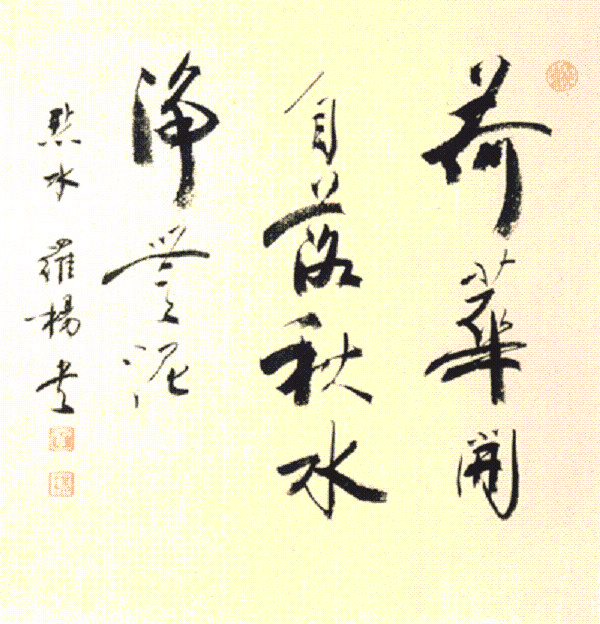 荷華開
自落秋水
淨無泥
點水 羅楊書